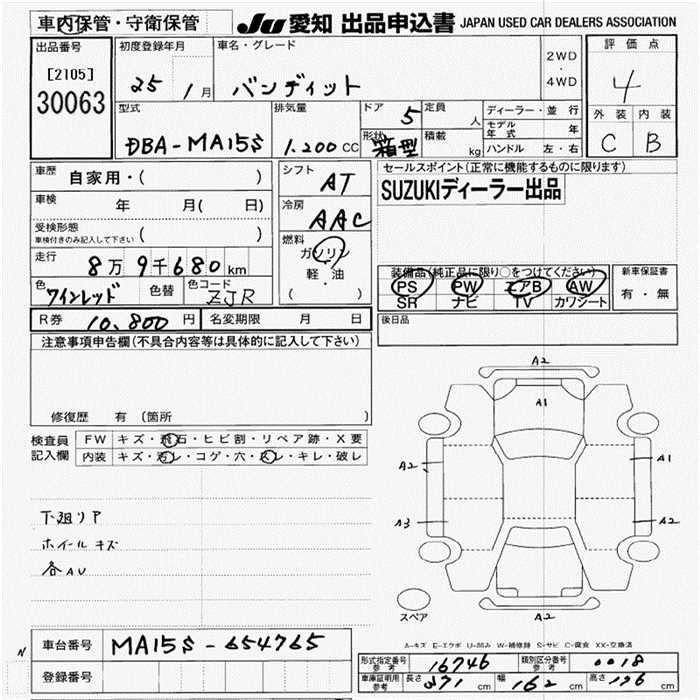 車内保管・守衛保管 JU 愛知 出品申込書 JAPAN USED CAR DEALERS ASSOCIATION
出品番号 初度登録年月 車名・グレード 2WD ・ 4WD 評価点
[2105] 30063 25 1月 バンディット 4
型式 排気量 ドア 5 定員 人 ディーラー・並行 外装 内装
DBA-MA15S 1.200 CC 形状 箱型 積載 kg モデル年式 年 C B
ハンドル 左・右
車歴 自家用・( ) シフト AT セールスポイント(正常に機能するものに限ります)
車検 年 月( 日) 冷房 AAC SUZUKIディーラー出品
受検形態 ( )
車検付きのみ記入して下さい
走行 8万9千680km 燃料 ガソリン 軽・油 ( ) 装備品(純正品に限り○をつけてください) 新車保証書
色 ワインレッド 色替 色コード ZJR PS PW エアB AW 有・無
SR ナビ TV カワシート
R券 10,800円 名変期限 月 日 後日品
注意事項申告欄(不具合内容等は具体的に記入して下さい)
修復歴 有 (箇所 )
検査員記入欄 FW キズ・飛石・ヒビ割・リペア跡・X要
内装 キズ・汚レ・コゲ・穴・スレ・キレ・破レ
A2
A1
A2 A1
A3 A2
A2
スペア
下廻リア
ホイールキズ
各AU
A-キズ E-エクボ U-凹み W-補修跡 S-サビ C-腐食 XX-交換済
N 車台番号 MA15S-654765
登録番号
形式指定番号 参考 16746 類別区分番号 参考 0018
車庫証明用 参考 長さ 371 cm 幅 162 cm 高さ 176 cm